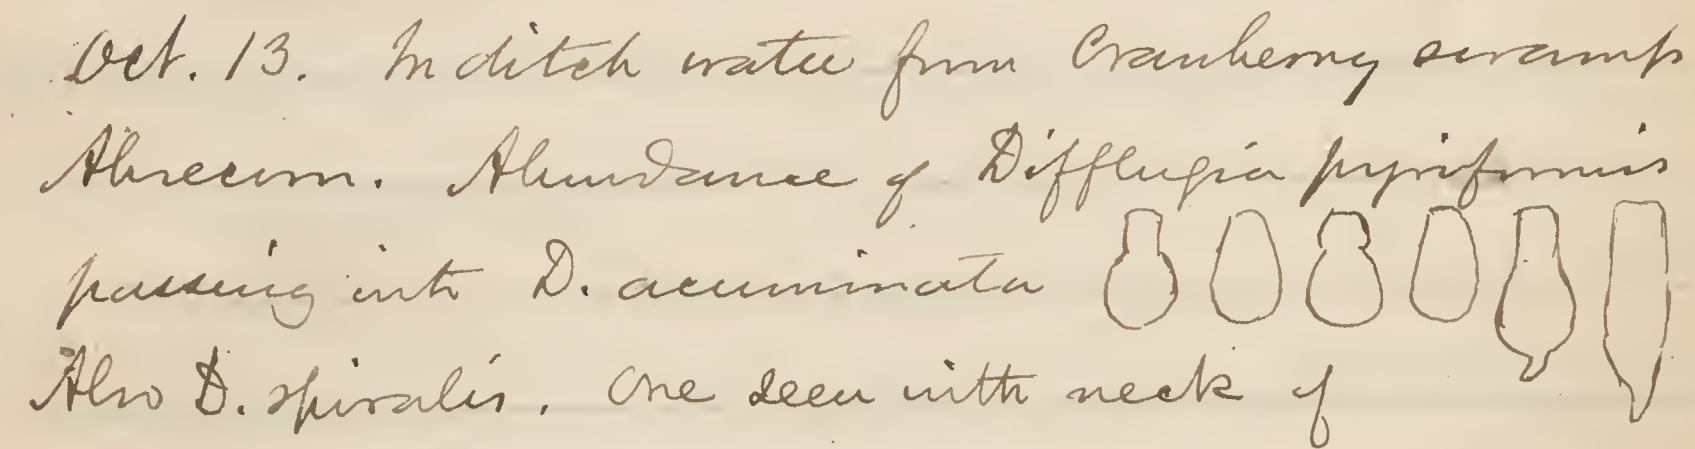 Oct. 13. In ditch water from Cranberry swamp
Absecum. Abundance of Difflugia pyriformis
passing into D. acuminata
Also D. spiralis. One seen with neck of